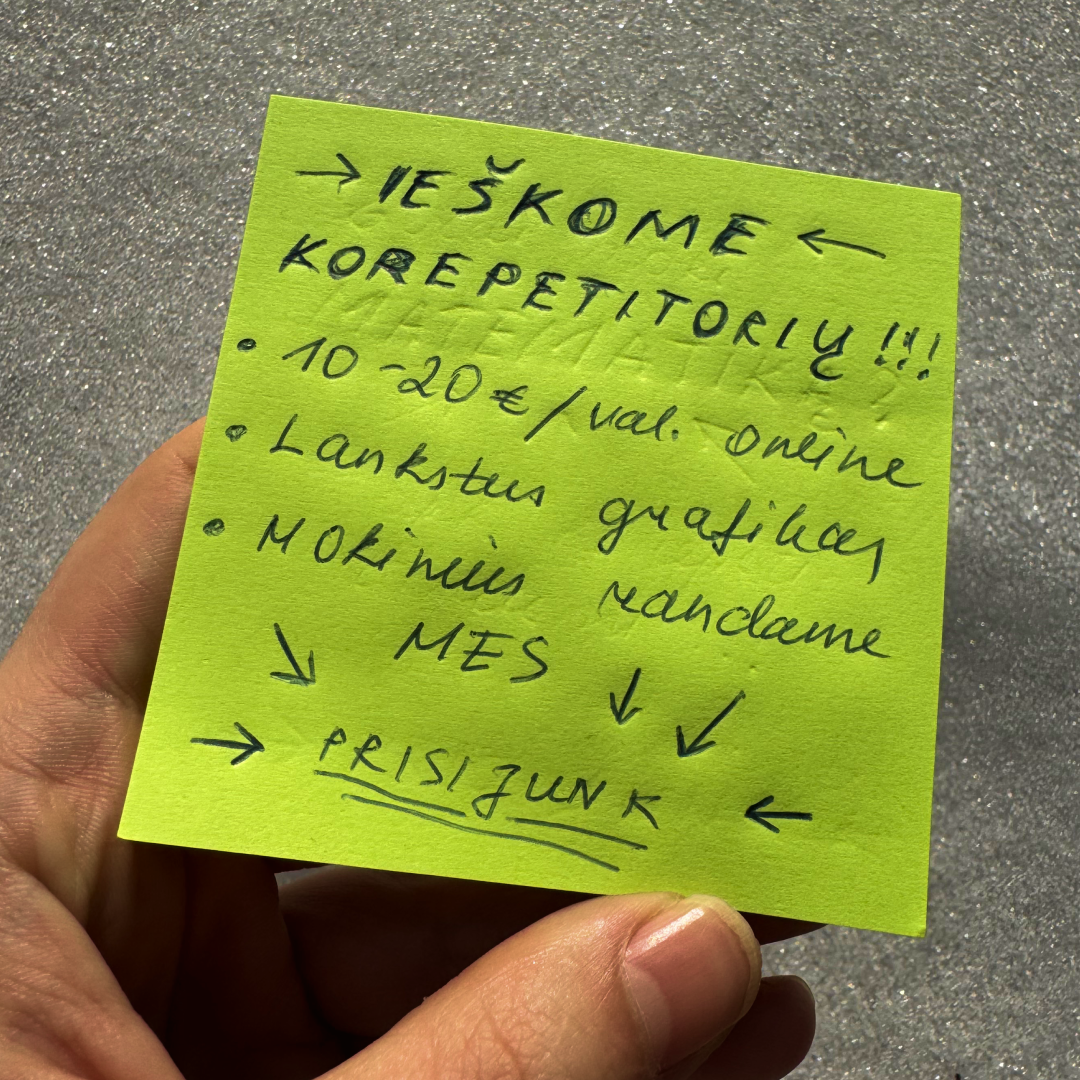 → IEŠKOME ←
KOREPETITORIŲ!!!
• 10-20€/val. online
• Lankstus grafikas
• Mokinius randame
MES
→ PRISIJUNK ←